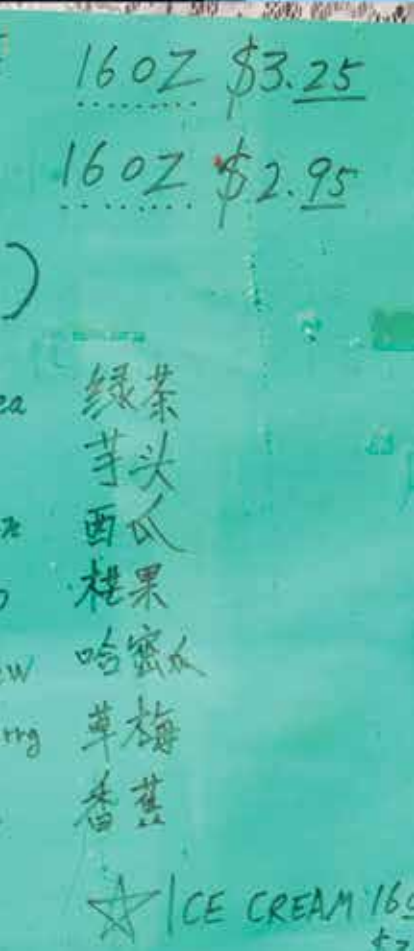 16 OZ $3.25
16 OZ $2.95
)
ea 绿茶
芋头
西瓜
杧果
ew 哈密瓜
rry 草梅
香蕉
☆ ICE CREAM 16